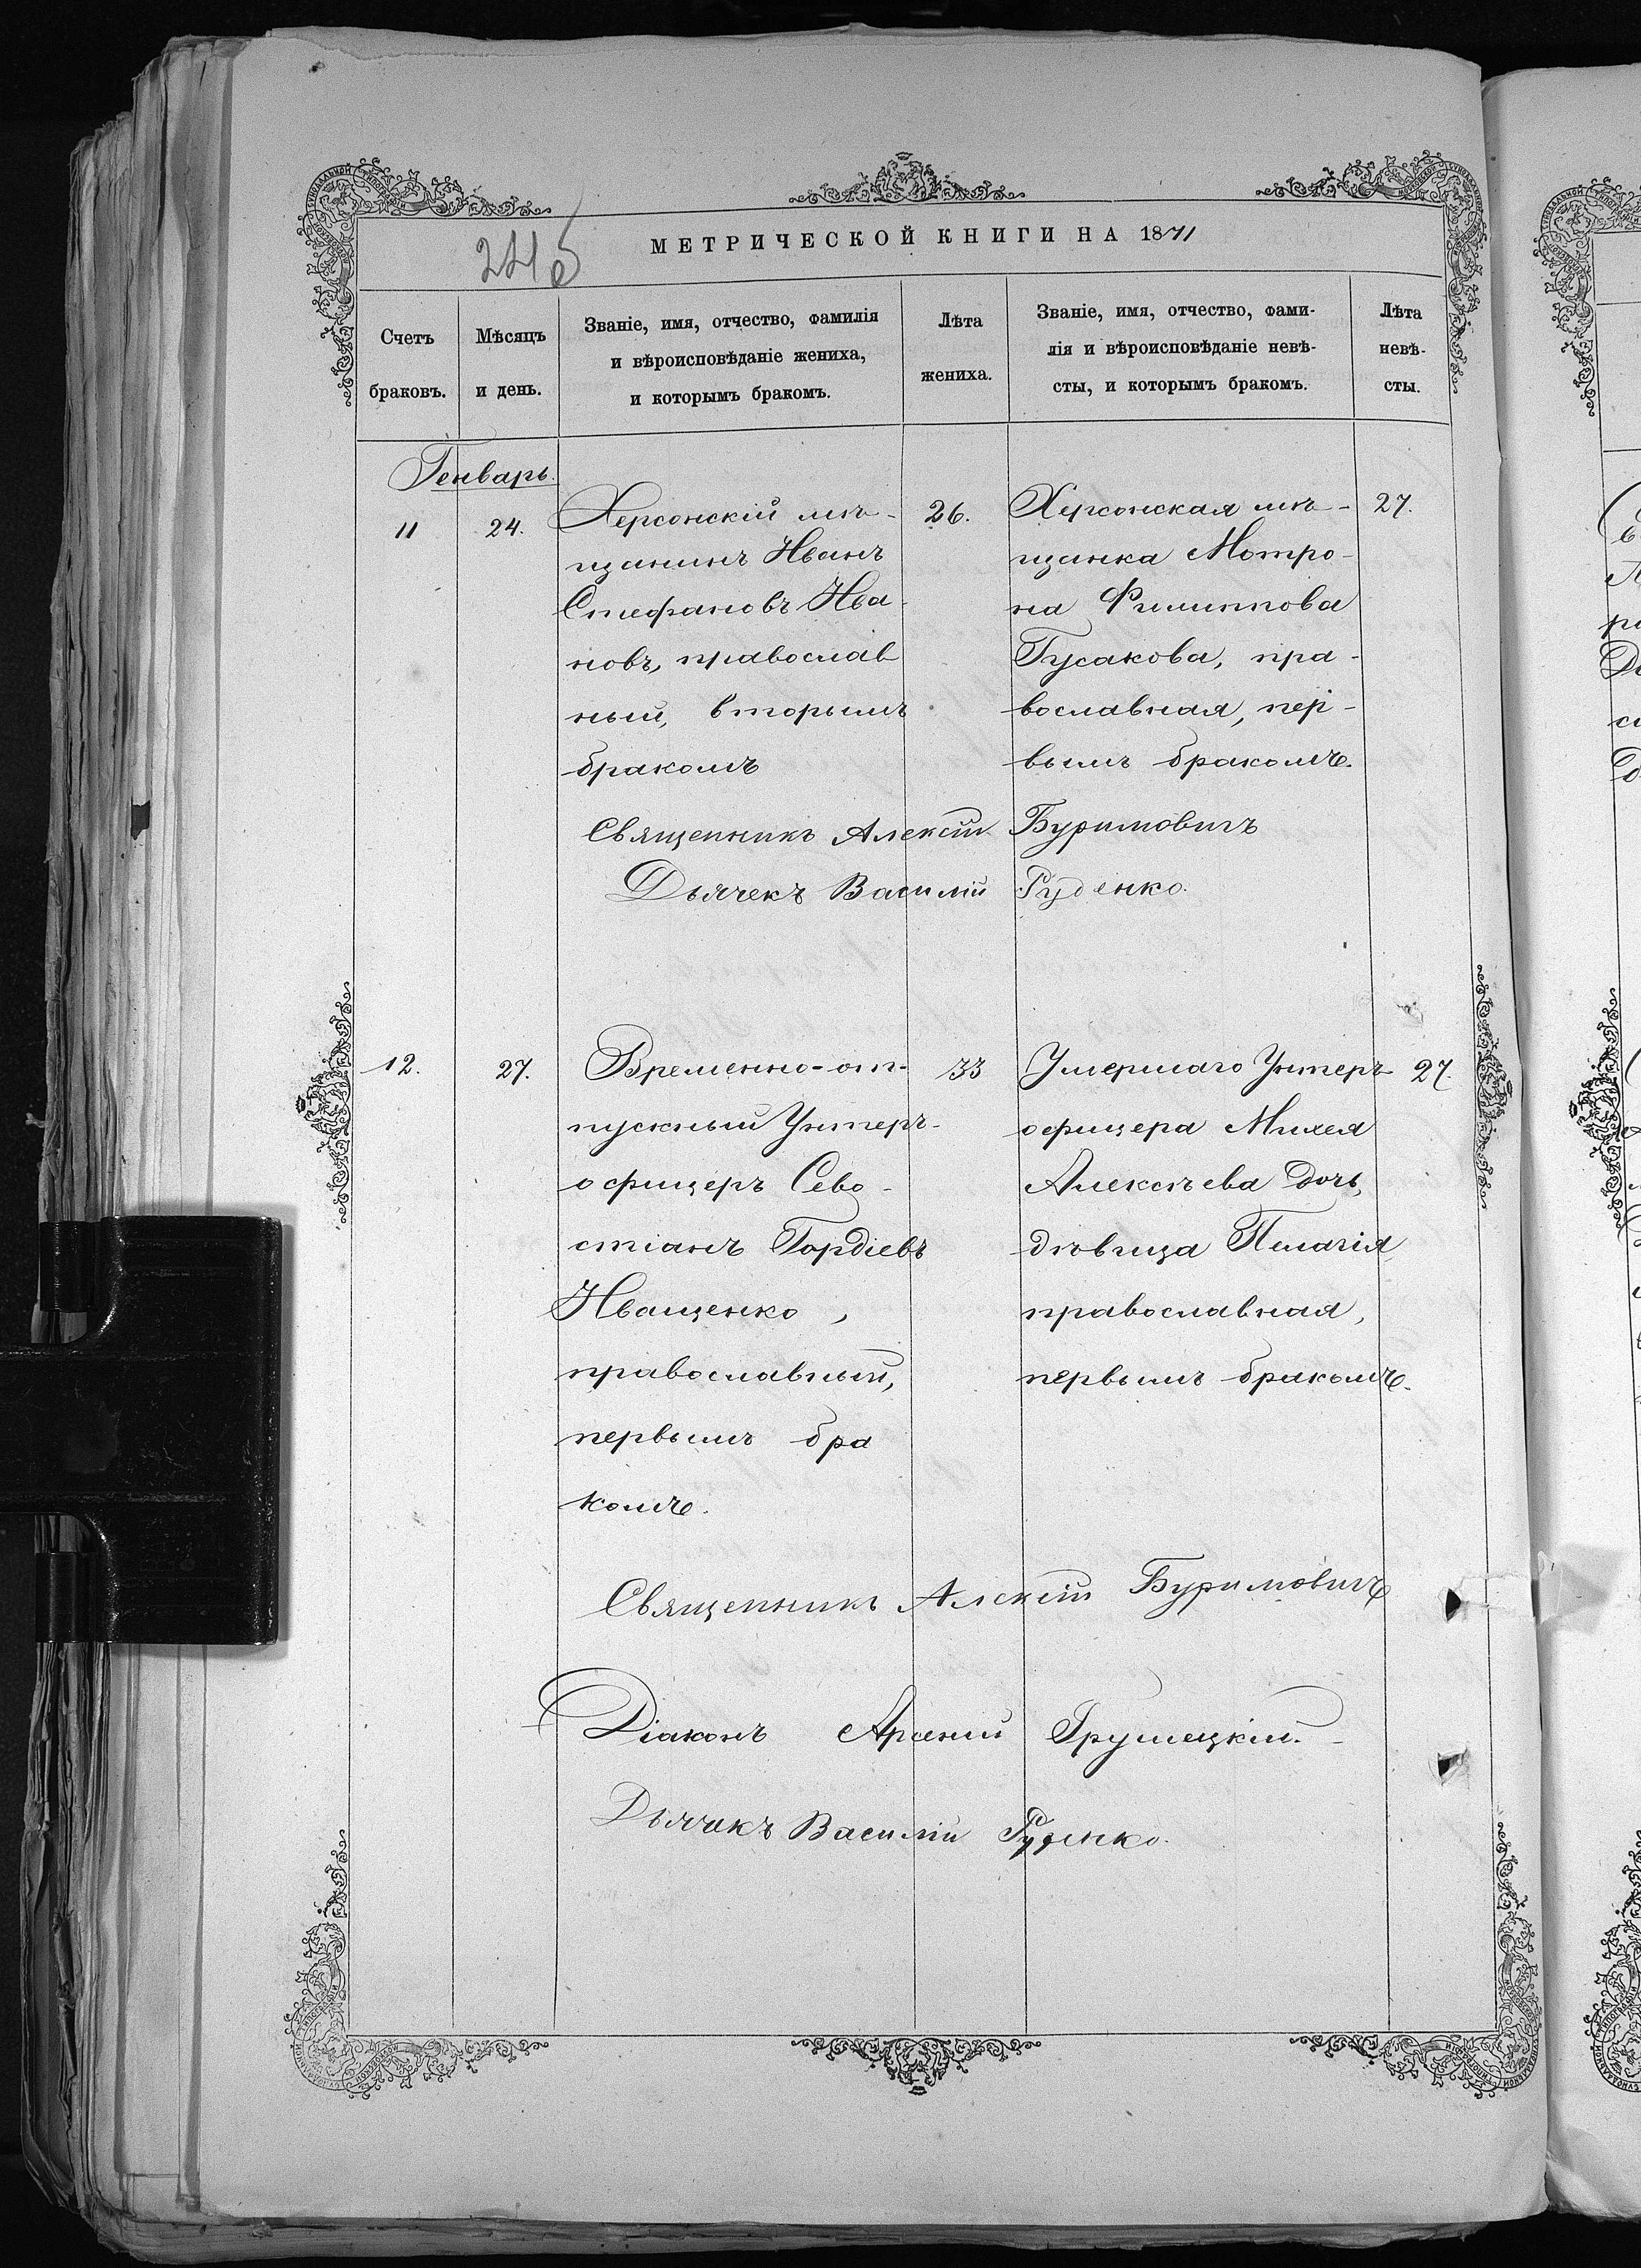 МЕТРИЧЕСКОЙ КНИГИ НА 1871
Счетъ браковъ.
Мѣсяцъ и день.
Званіе, имя, отчество, фамилія
и вѣроисповѣданіе жениха,
и которымъ бракомъ.
Лѣта жениха.
Званіе, имя, отчество, фами-
лія и вѣроисповѣданіе невѣ-
сты, и которымъ бракомъ.
Лѣта невѣ-
сты.
Генварь.
11
24.
Херсонскій мѣ-
щанинъ Иванъ
Стефановъ Ива-
новъ, православ
ный, вторымъ
бракомъ
26.
Херсонская мѣ-
щанка Мотро-
на Филиппова
Гусакова, пра-
вославная, пер-
вымъ бракомъ.
27.
Священникъ Алексій Буримовичъ
Дьячекъ Василій Руденко.
12.
27.
Временно-от-
пускный Унтеръ-
офицеръ Сево-
стіанъ Гордіевъ
Иващенко,
православный,
первымъ бра
комъ.
33
Умершаго Унтеръ-
офицера Михея
Алексѣева дочь,
дѣвица Пелагія,
православная,
первымъ бракомъ.
27.
Священникъ Алексій Буримовичъ
Діаконъ Арсеній Грушецкій.
Дьячекъ Василій Руденко.